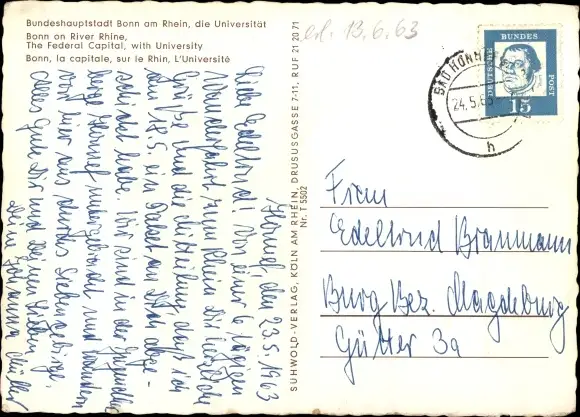 Bundeshauptstadt Bonn am Rhein, die Universität
Bonn on River Rhine,
The Federal Capital, with University
Bonn, la capitale, sur le Rhin, L'Université
erl. 13.6.63
DEUTSCHE BUNDESPOST
15
BAD HONNEF
24.5.63
h
SUHWOLD-VERLAG, KÖLN AM RHEIN, DRUSUSGASSE 7-11, RUF 21 20 71
Nr. T 5502
Honnef, den 23.5.1963
Liebe Edeltrud! Von einer 6 tägigen
Wanderfahrt zum Rhein Dir herzliche
Grüße und die Mitteilung, daß ich
am 18.5. ein Paket an Dich abge-
schickt habe. Wir sind in der Jugendher-
berge Honnef untergebracht und wandern
von hier aus durchs Siebengebirge.
Alles Gute Dir und Deinen Lieben
Dein Johannes Müller
Frau
Edeltrud Braumann
Burg Bez. Magdeburg
Gütter 3a